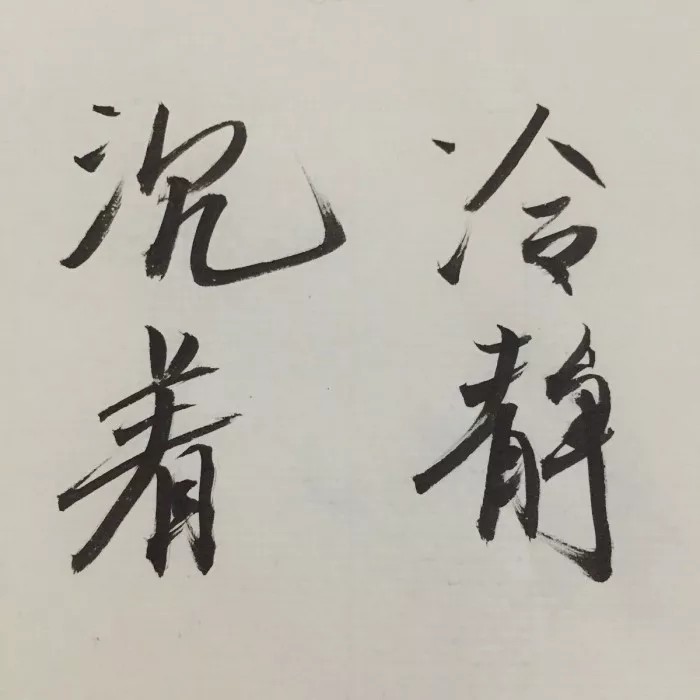 冷静
沉着